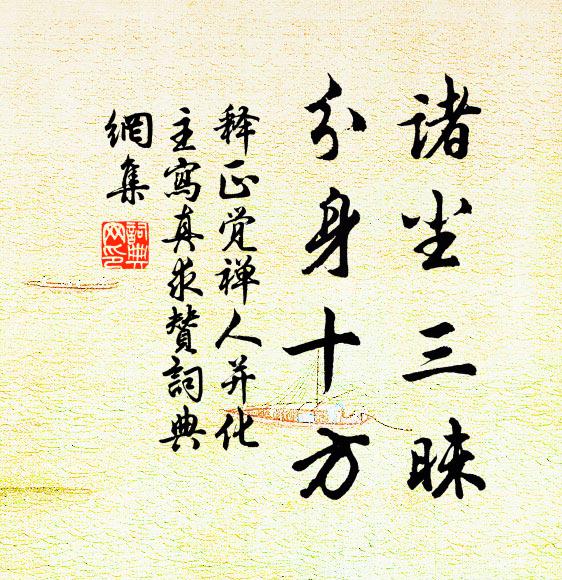 诸尘三昧
分身十方
释正觉禅人并化
主寫真求赞詞典
網集
詞典网印